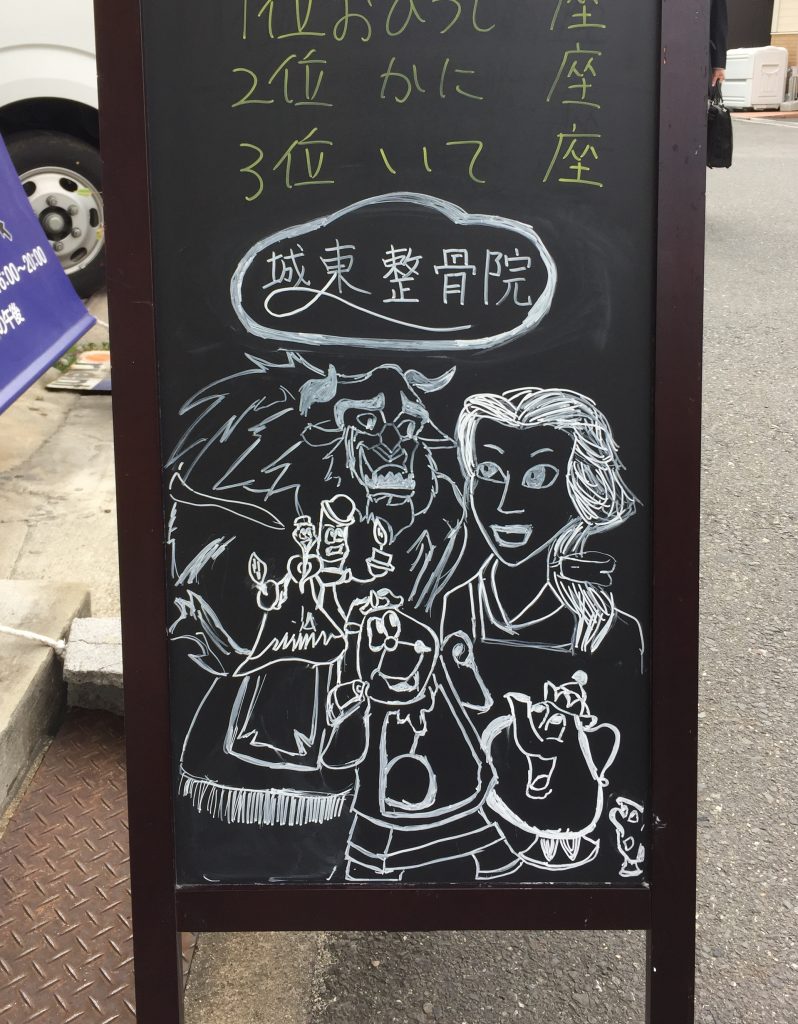 1位おひつじ 座
2位 かに 座
3位 いて 座
城東整骨院
6:00〜20:00
午後